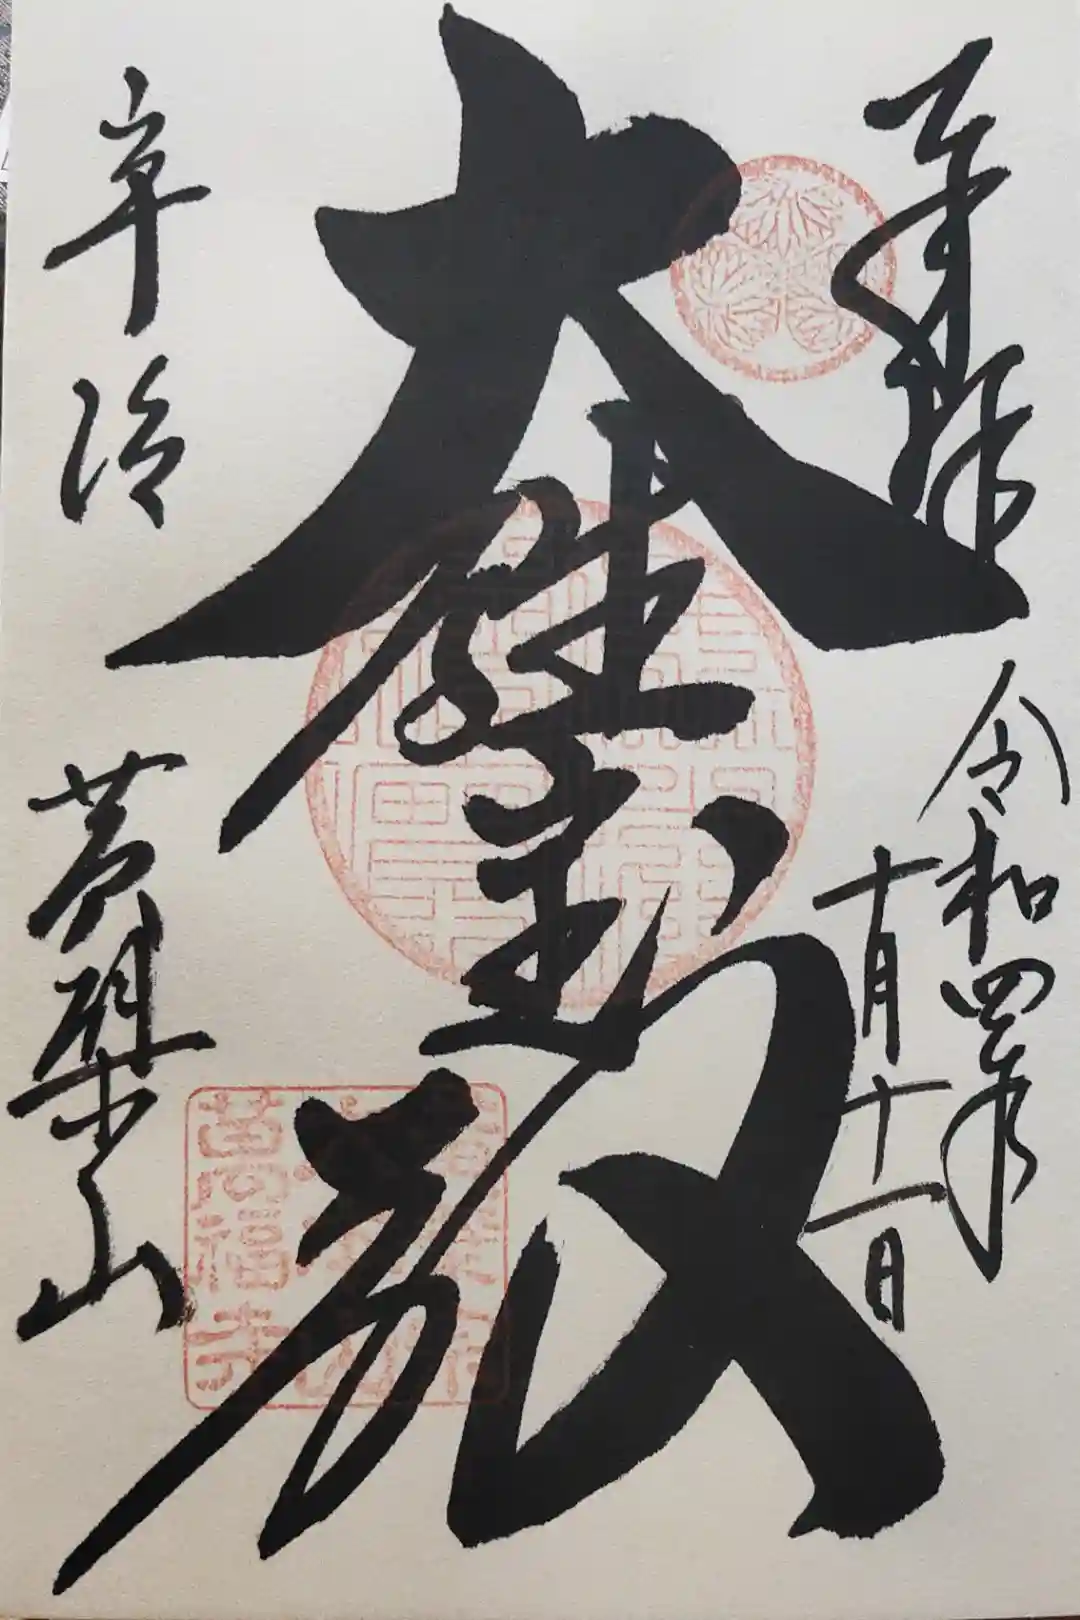 奉拝
令和四年
十月十一日
大雄宝殿
宇治 黄檗山
萬福寺